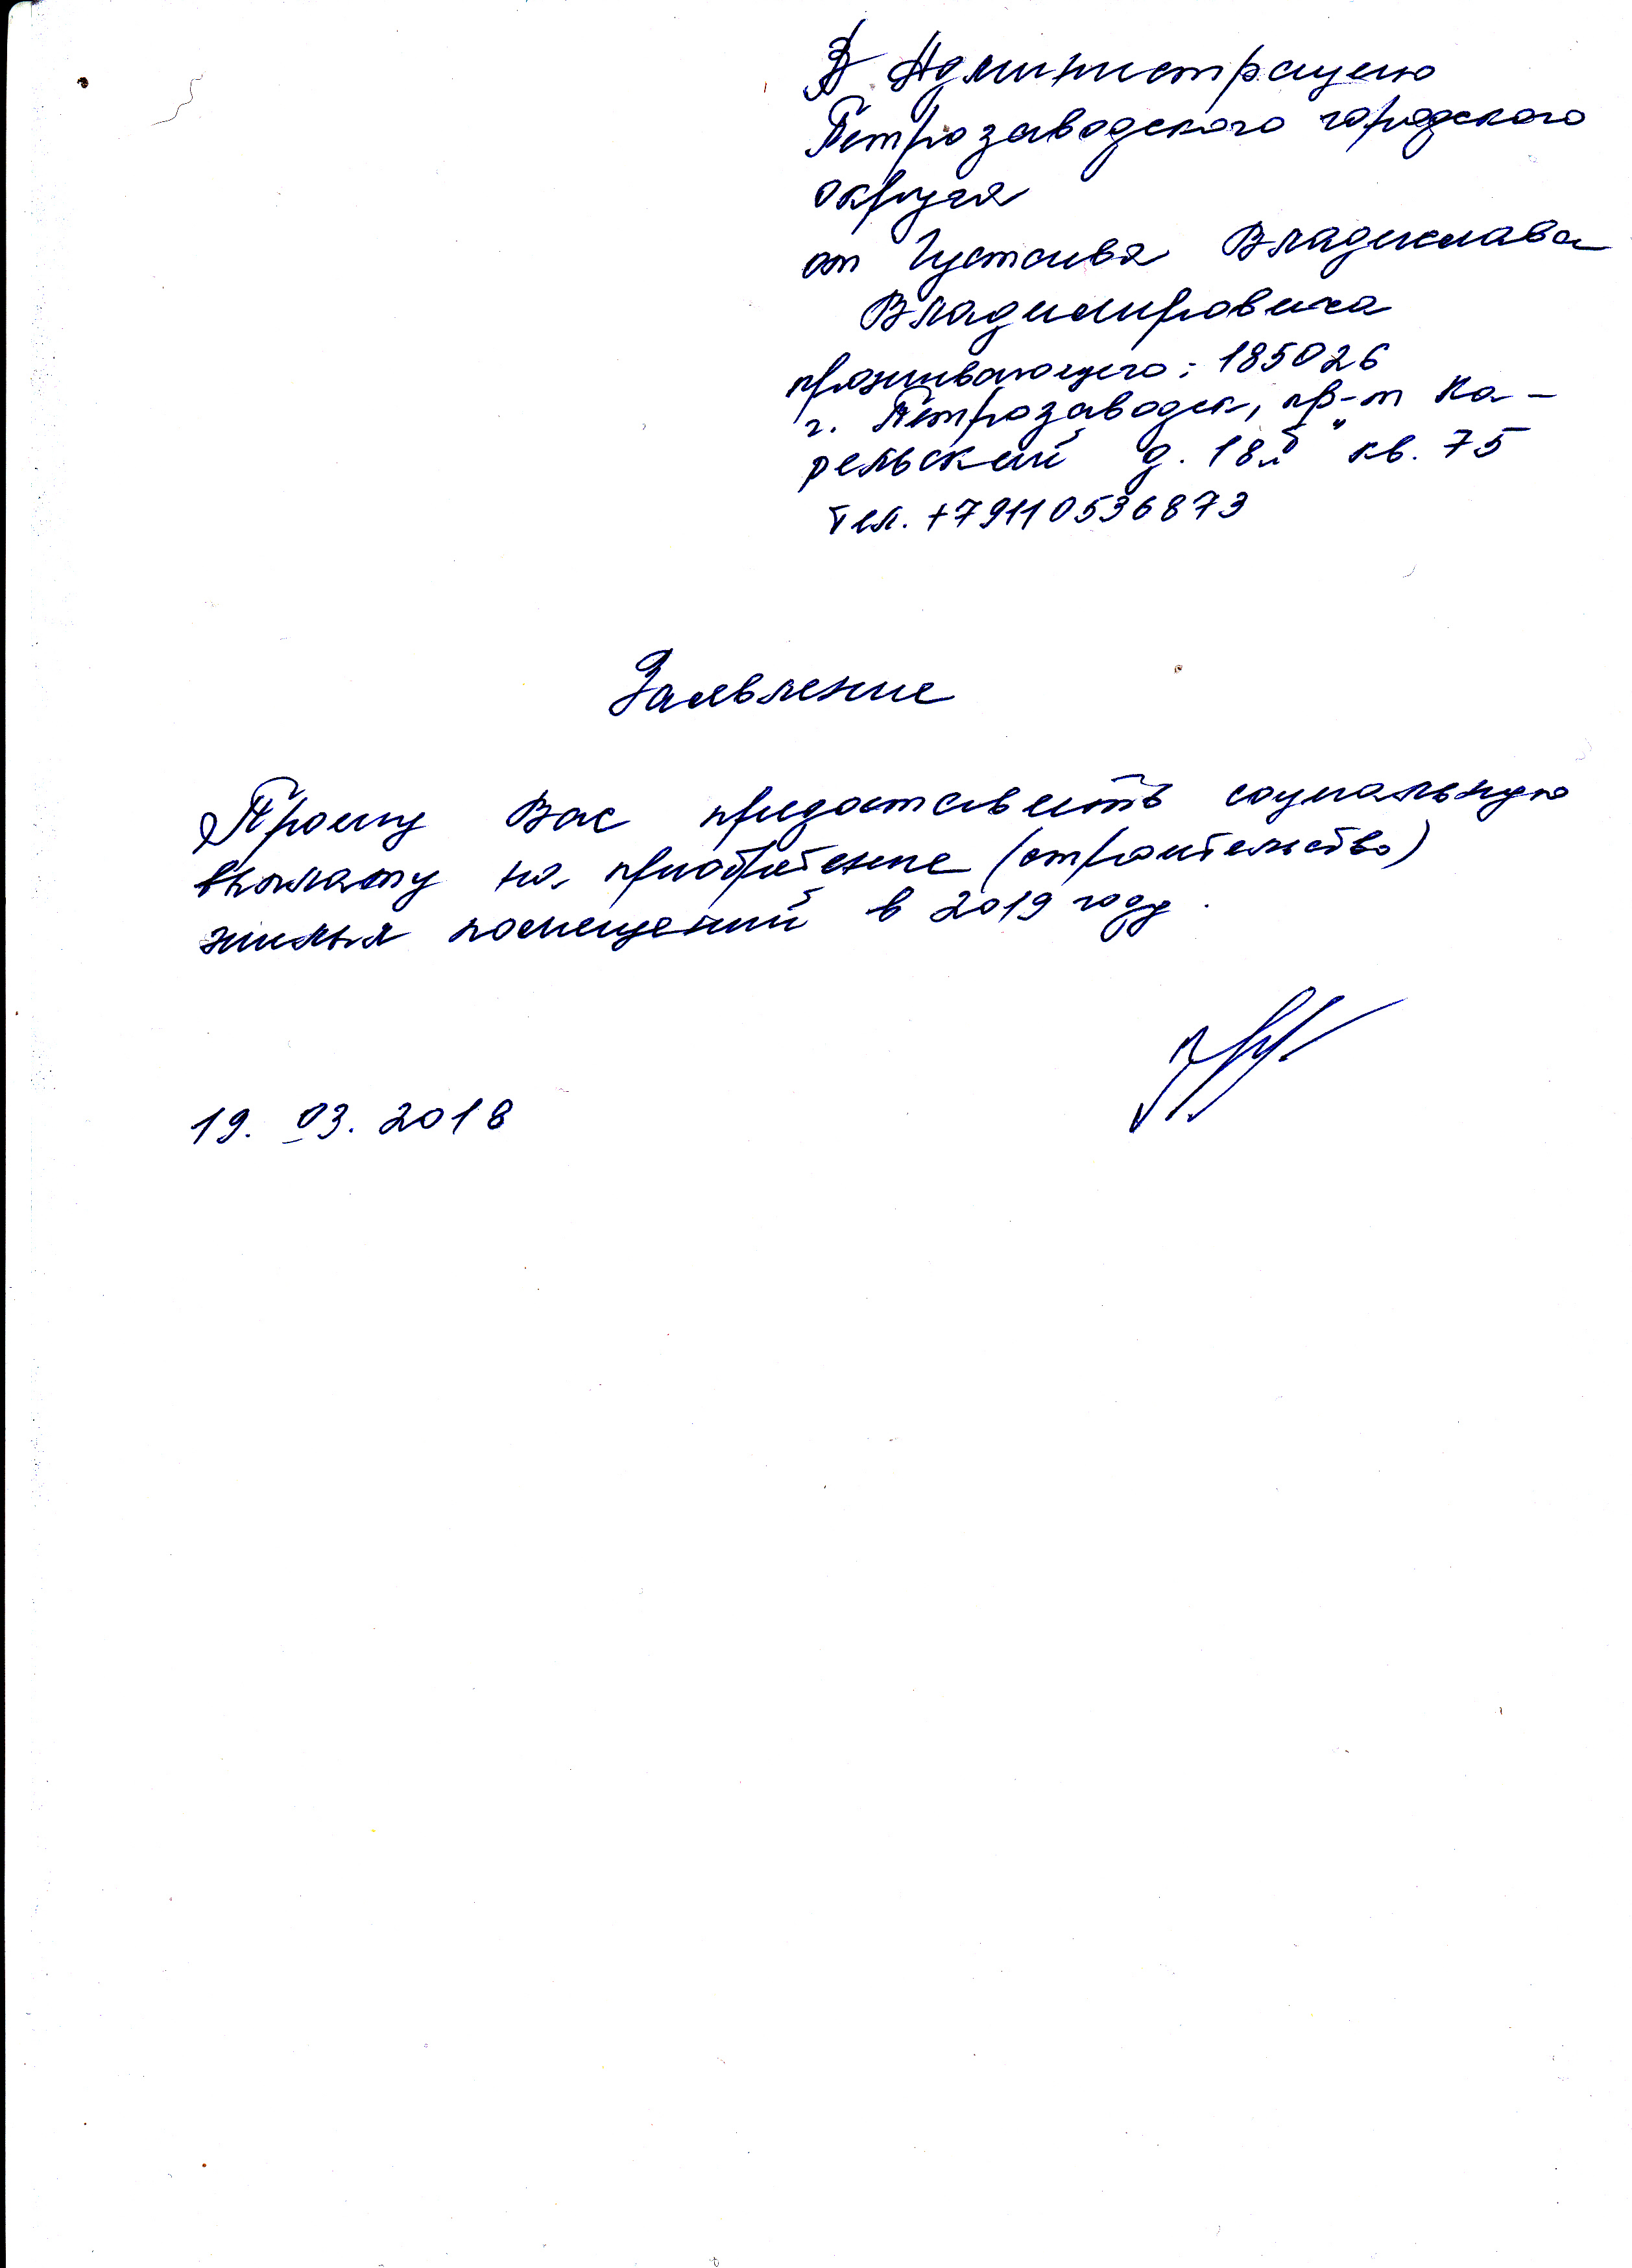 В Администрацию
Петрозаводского городского
округа
от Густоива Владислава
Владимировича
проживающего: 185026
г. Петрозаводск, пр-т Ка-
рельский д. 18 „б" кв. 75
тел. +79110536873
Заявление
Прошу Вас предоставить социальную
выплату на приобретение (строительство)
жилых помещений в 2019 году.
19. 03. 2018